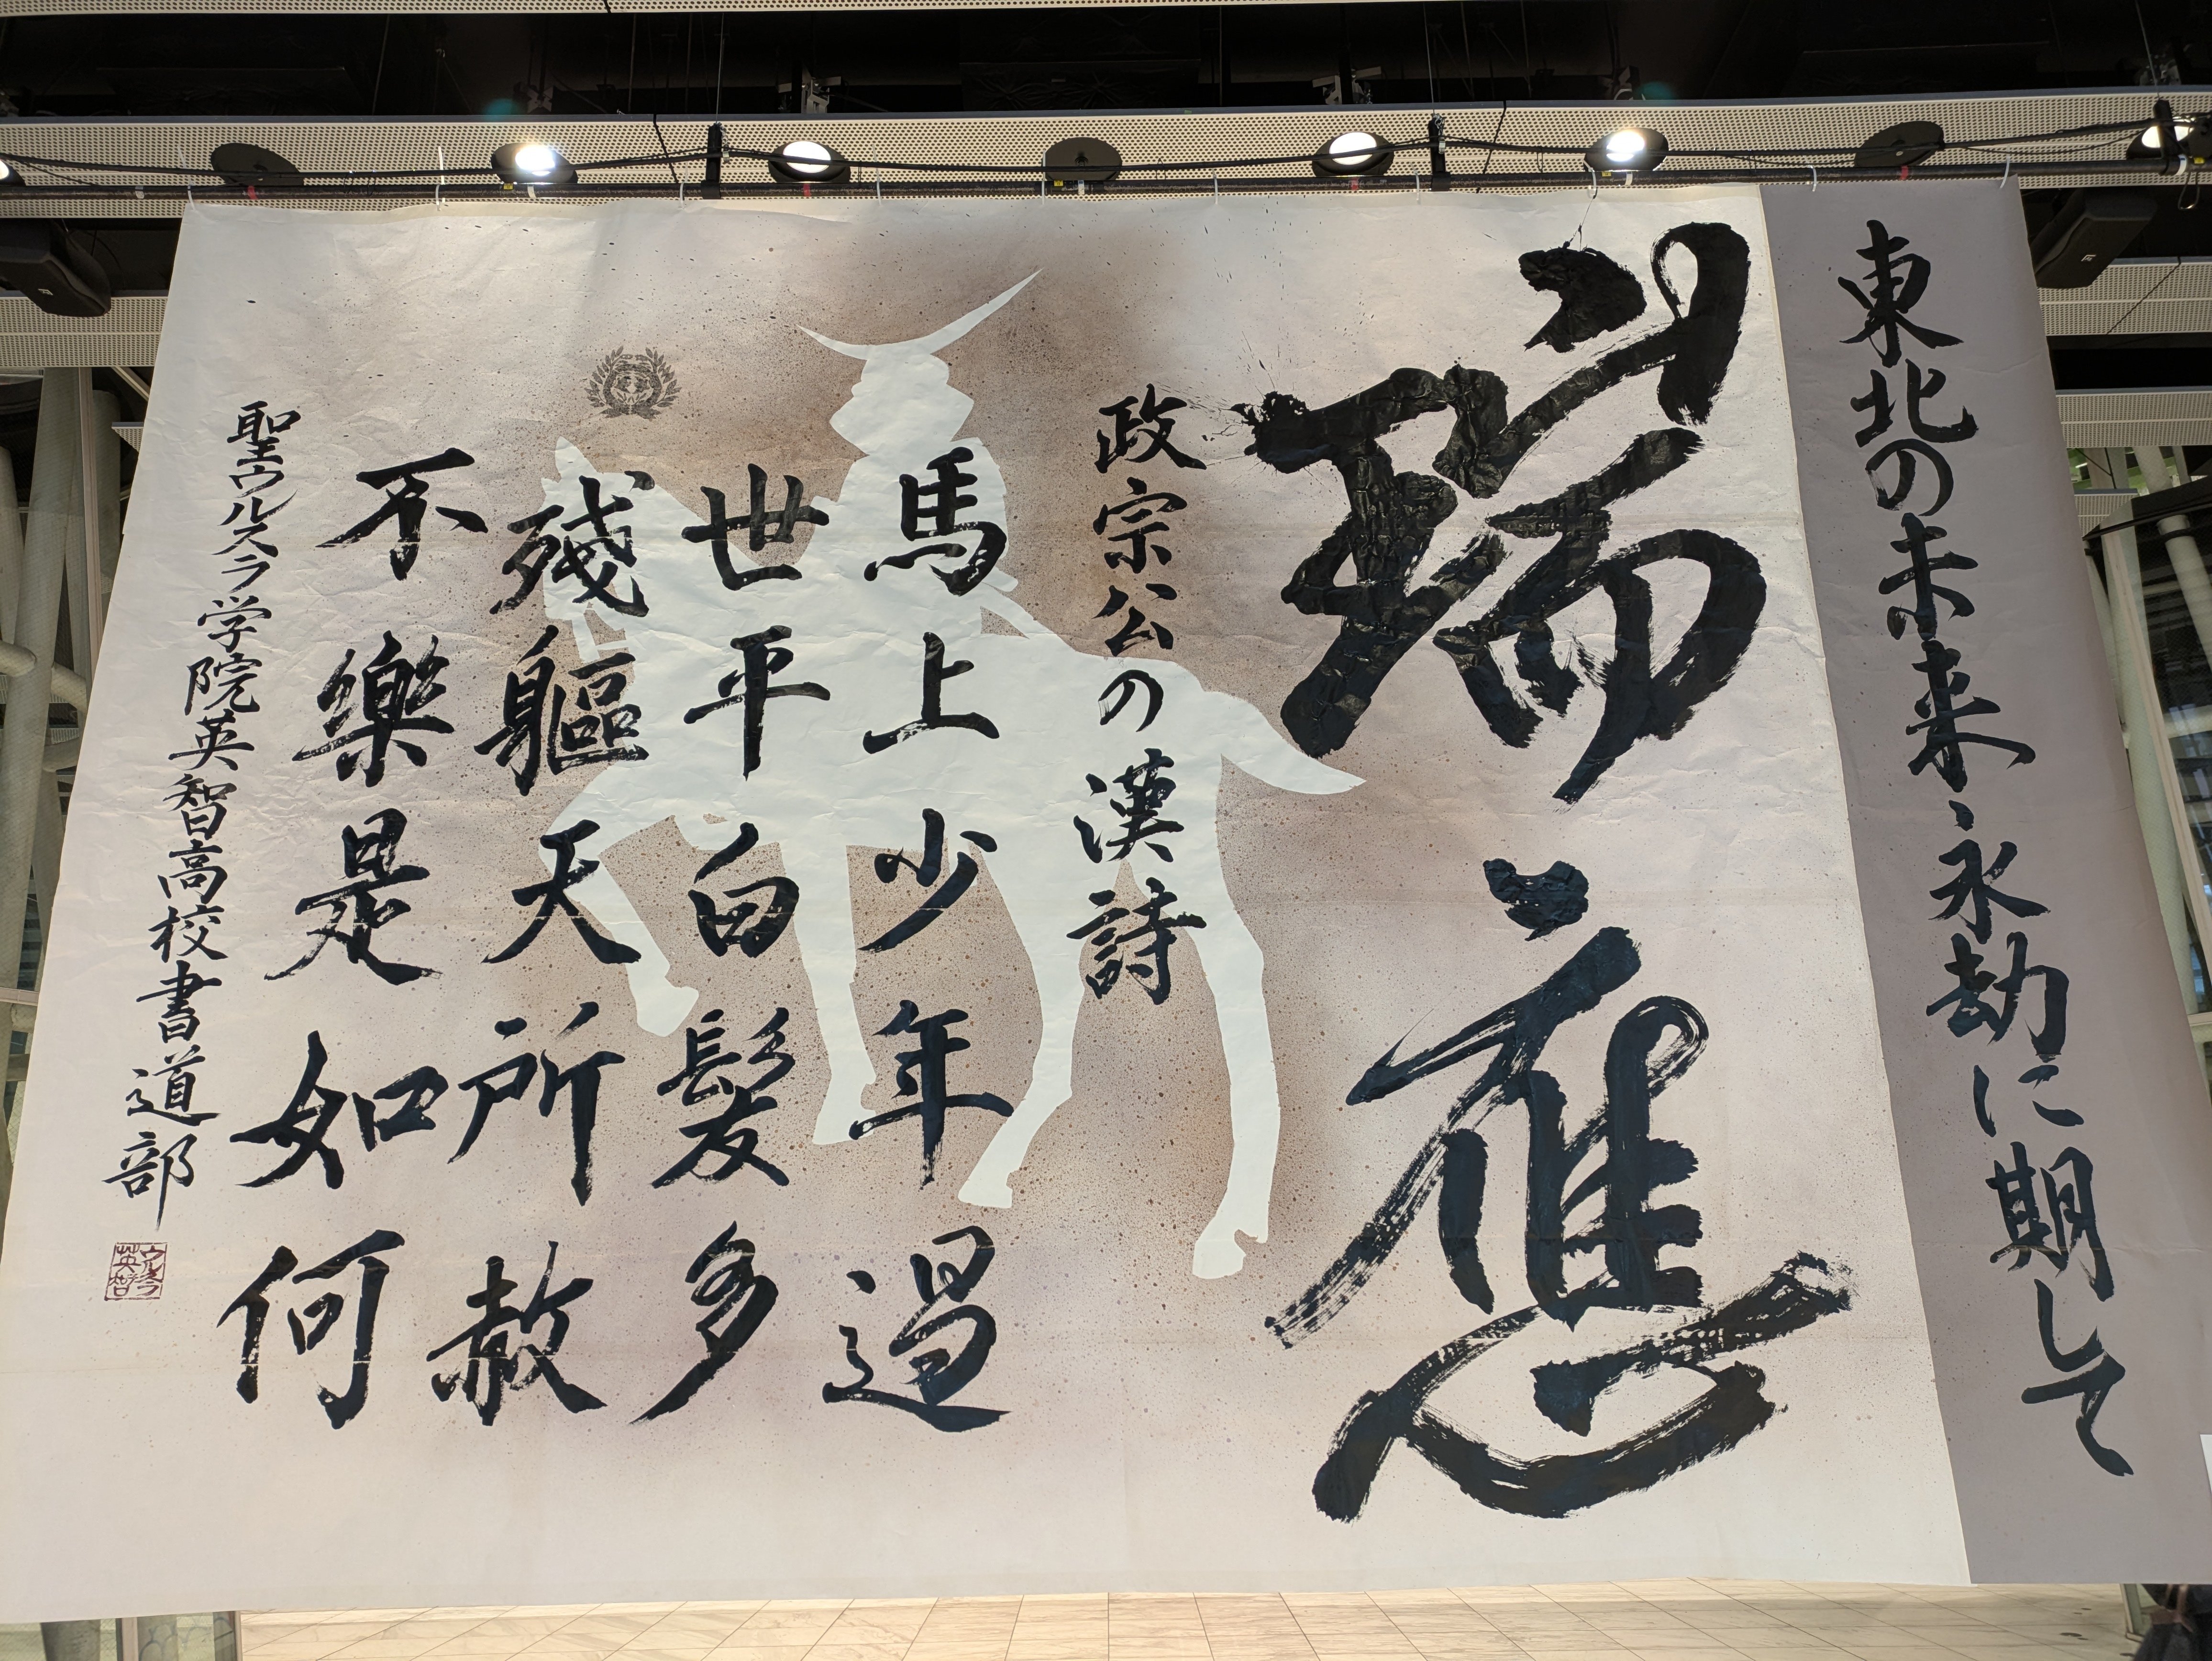 東北の未来、永劫に期して
瑞應
政宗公の漢詩
馬上少年過
世平白髪多
残軀天所赦
不樂是如何
聖ウルスラ学院英智高校書道部